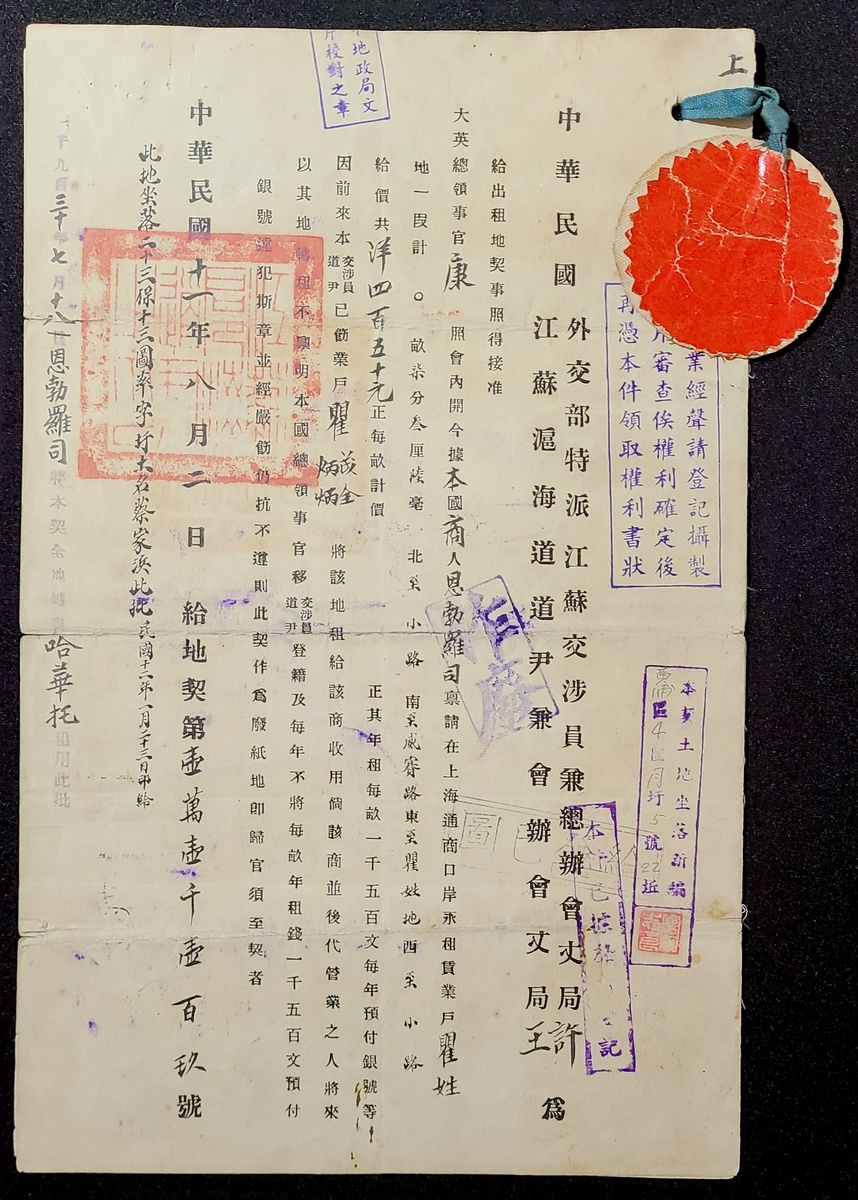 上
中華民國外交部特派江蘇交涉員兼總辦會丈局許
江蘇滬海道道尹兼會辦會丈局王
為
給出租地契事照得接准
大英總領事官康 照會內開今據本國商人恩勃羅司稟請在上海通商口岸永租賃業戶瞿姓
地一段計 〇 畝柒分叁厘陸毫 北至小路 南至威賽路東至瞿姓地西至小路
給價共洋四百五十元正每畝計價 正其年租每畝一千五百文每年預付銀號等
因前來本交涉員道尹已飭業戶瞿茂金炳炳 將該地租給該商收用倘該商並後代管業之人將來
以其地轉租不稟明本國總領事官移交涉員道尹登籍及每年不將每畝年租錢一千五百文預付
銀號違犯斯章並經嚴飭仍抗不遵則此契作為廢紙地即歸官須至契者
中華民國十一年八月二日 給地契第壹萬壹千壹百玖號
此地坐落二十三保十三圖 字圩土名蔡家浜此批民國十二年一月二十三日 給
一千九百三十年七月十八 恩勃羅司將本契全地轉 哈華托 租用此批
地政局文
校對之章
業經聲請登記攝製
審查俟權利確定後
再憑本件領取權利書狀
本契土地坐落新編
區4 圩5號22坵
圖已
本 已 記